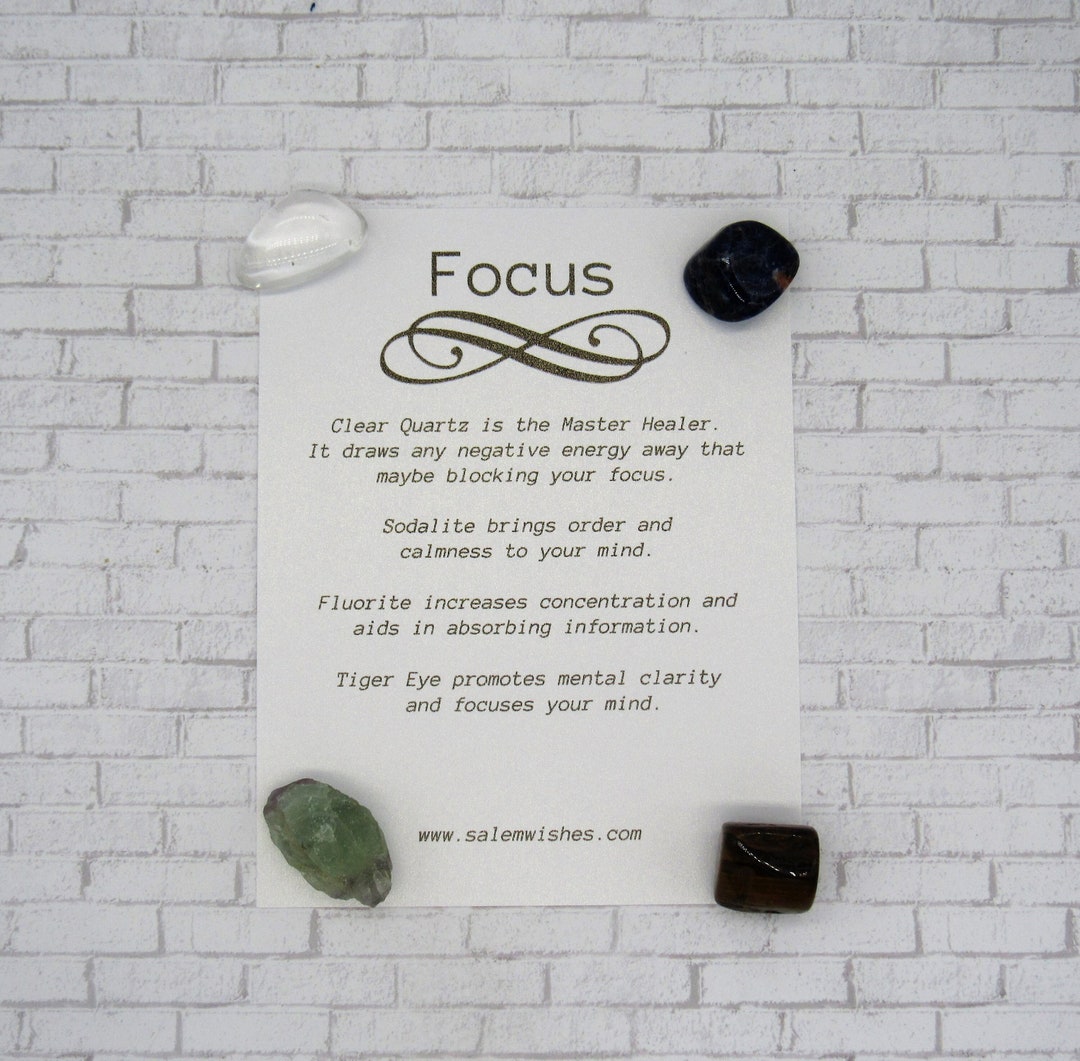 Focus
Clear Quartz is the Master Healer.
It draws any negative energy away that
maybe blocking your focus.
Sodalite brings order and
calmness to your mind.
Fluorite increases concentration and
aids in absorbing information.
Tiger Eye promotes mental clarity
and focuses your mind.
www.salemwishes.com